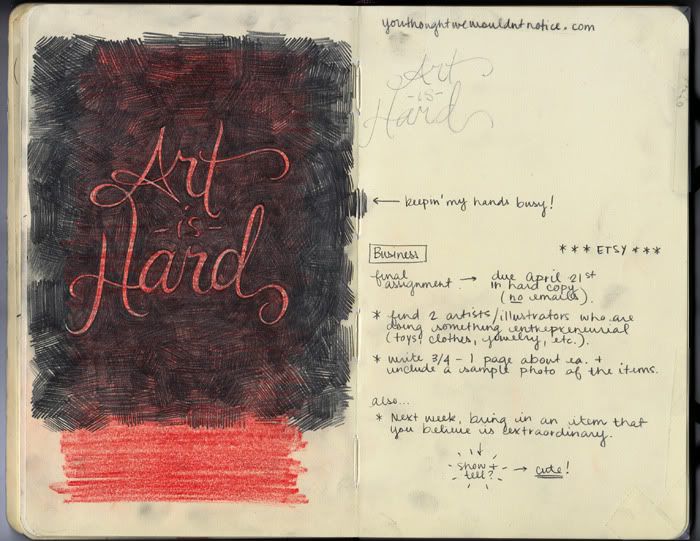 Art
-is-
Hard
youthoughtwewouldntnotice.com
Art
-is-
Hard
← keepin' my hands busy!
Business
*** ETSY ***
final assignment → due April 21st
in hard copy
(no emails).
* find 2 artists/illustrators who are
doing something entrepreneurial
(toys, clothes, jewelry, etc.).
* write 3/4 - 1 page about ea. +
include a sample photo of the items.
also...
* Next week, bring in an item that
you believe is extraordinary.
↓
show +
tell? → cute!